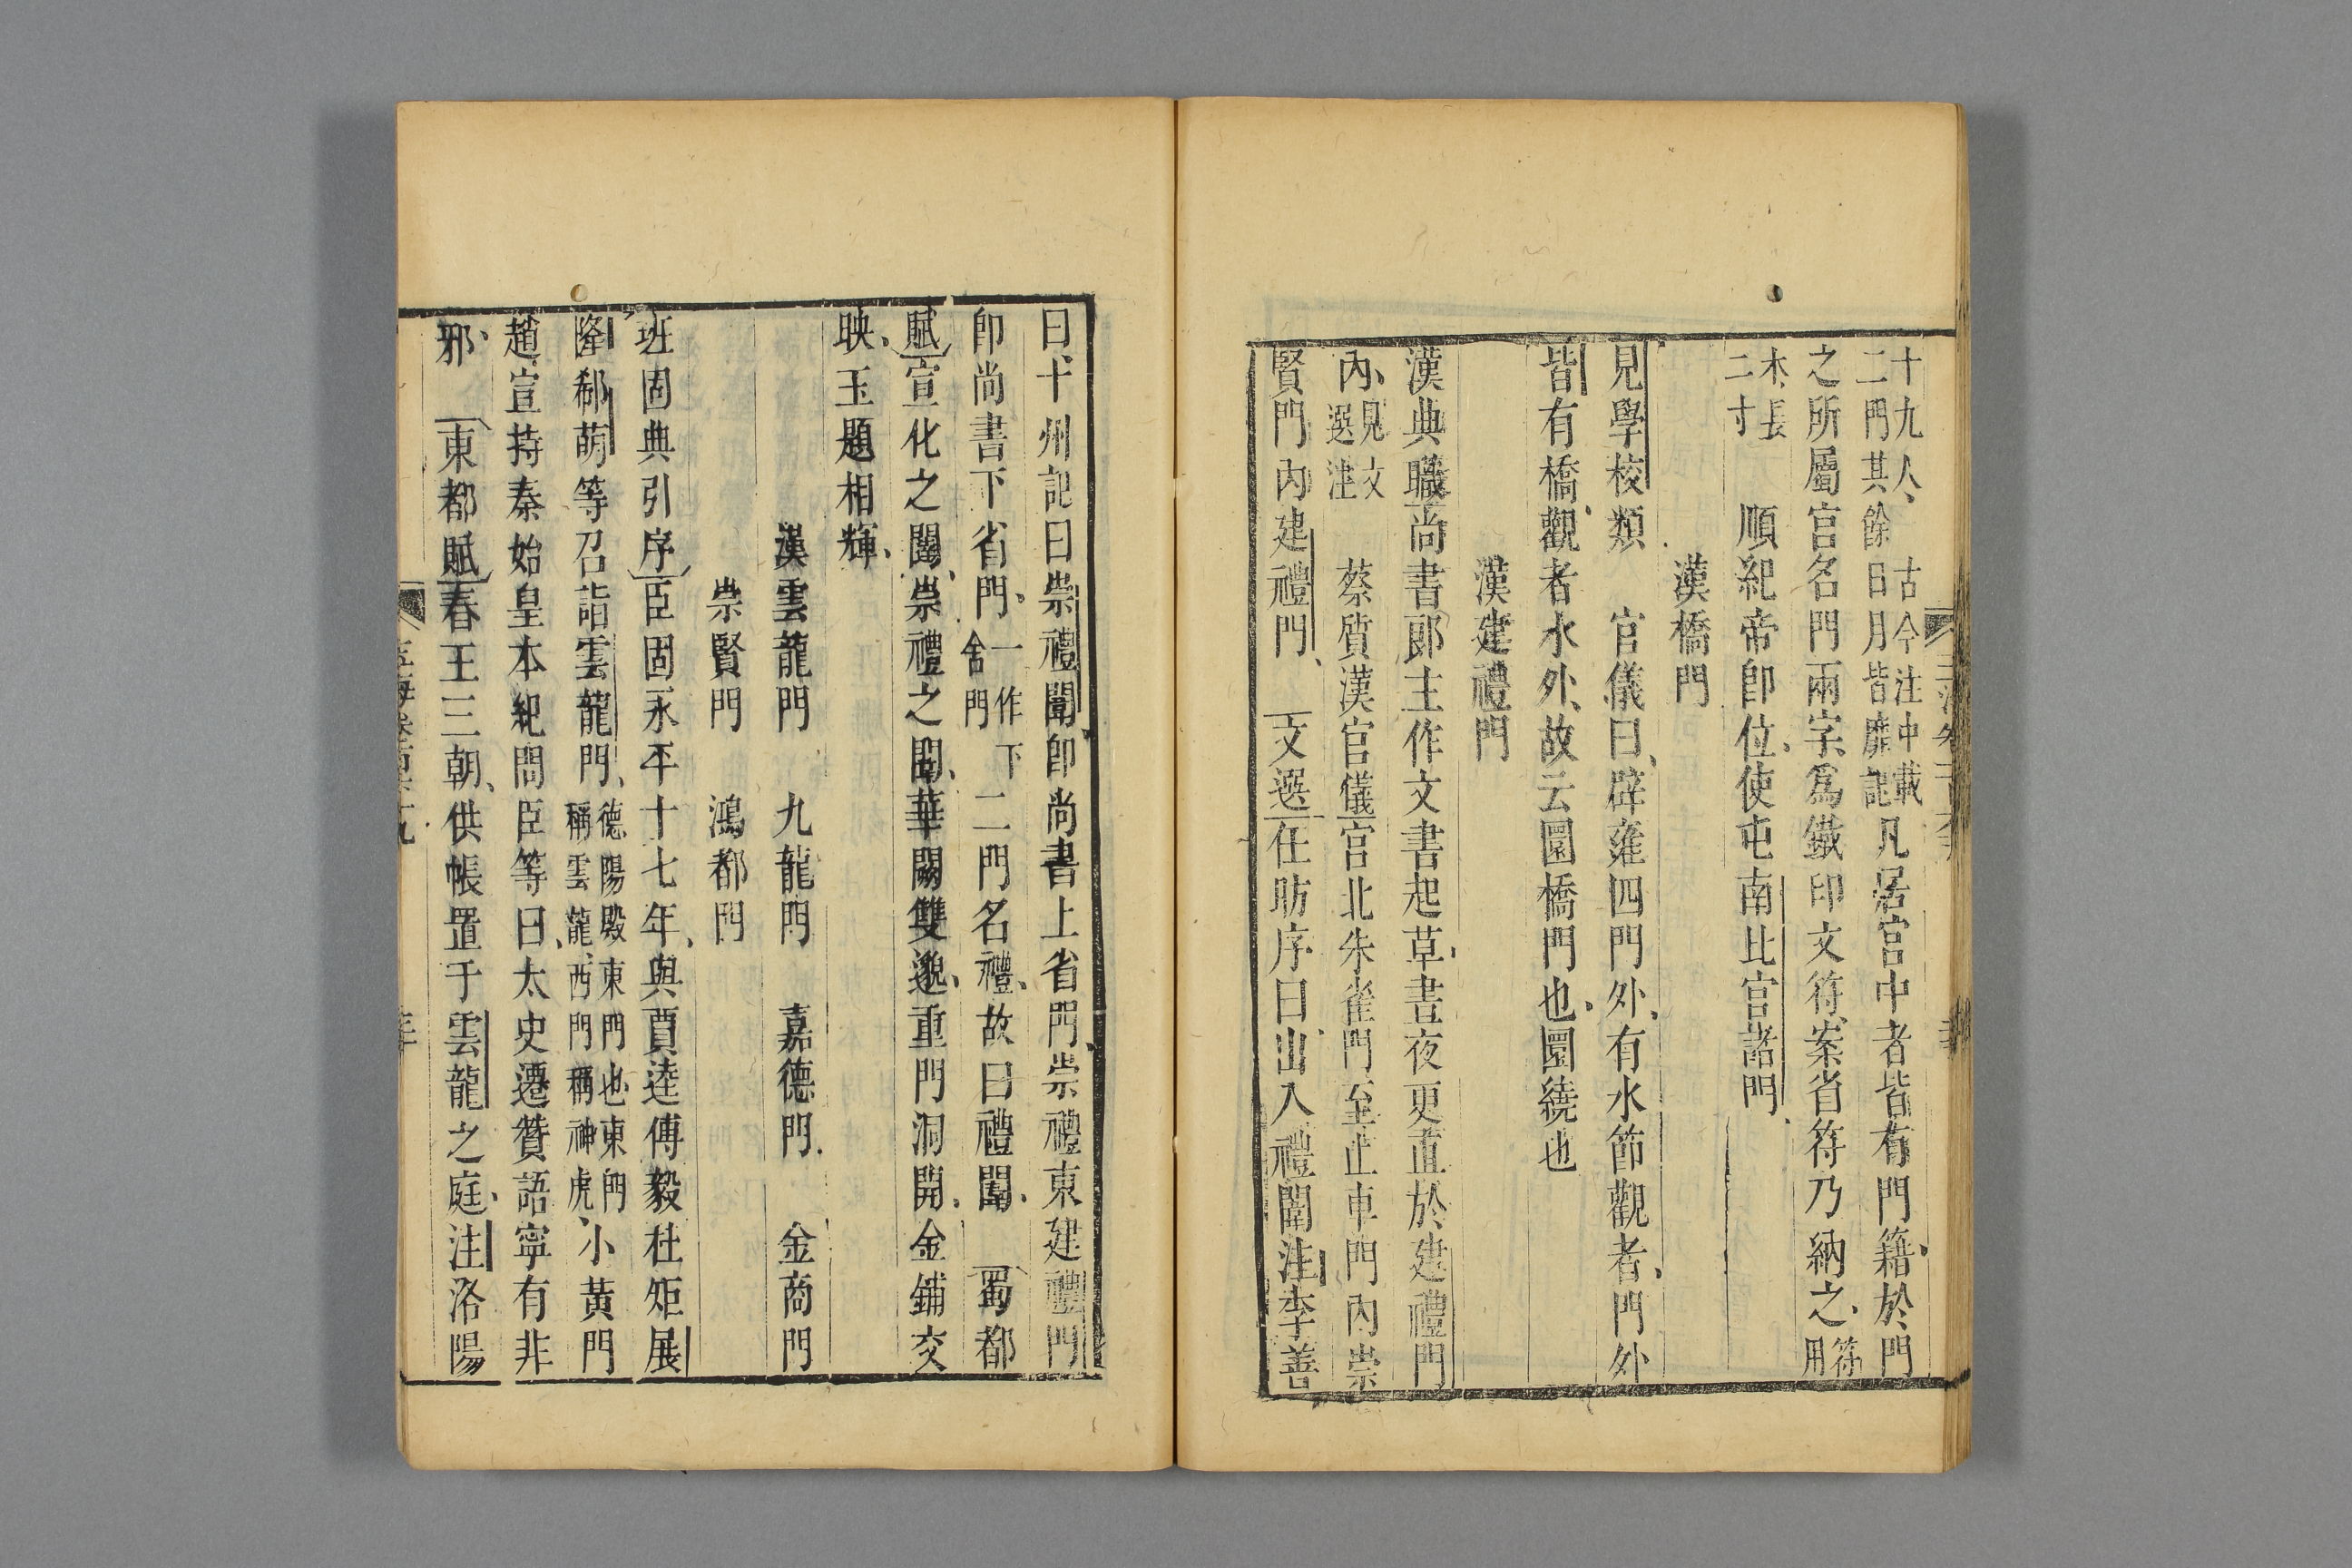 十九人古今注中載
二門其餘日月皆靡記凡居宮中者皆有門籍於門
之所屬宮名門兩字爲鐵印文符案省符乃納之符用
木長二寸　順紀帝卽位使屯南北宮諸門
漢橋門
見學校類　官儀曰辟雍四門外有水節觀者門外
皆有橋觀者水外故云圜橋門也圜繞也
漢建禮門
漢典職尚書郞主作文書起草晝夜更直於建禮門
內見文選注　蔡質漢官儀宮北朱雀門至止車門內崇
賢門內建禮門　文選任昉序曰出入禮闈注李善
曰十州記曰崇禮闈卽尚書上省門崇禮東建禮門
卽尚書下省門一作下舍門二門名禮故曰禮闈　蜀都
賦宣化之闥崇禮之闈華闕雙邈重門洞開金鋪交
映玉題相輝
漢雲龍門　九龍門　嘉德門　金商門
崇賢門　鴻都門
班固典引序臣固永平十七年與賈逵傅毅杜矩展
隆郗萌等召詣雲龍門德陽殿東門也東門稱雲龍西門稱神虎小黃門
趙宣持秦始皇本紀問臣等曰太史遷贊語寧有非
邪　東都賦春王三朝供帳置于雲龍之庭注洛陽